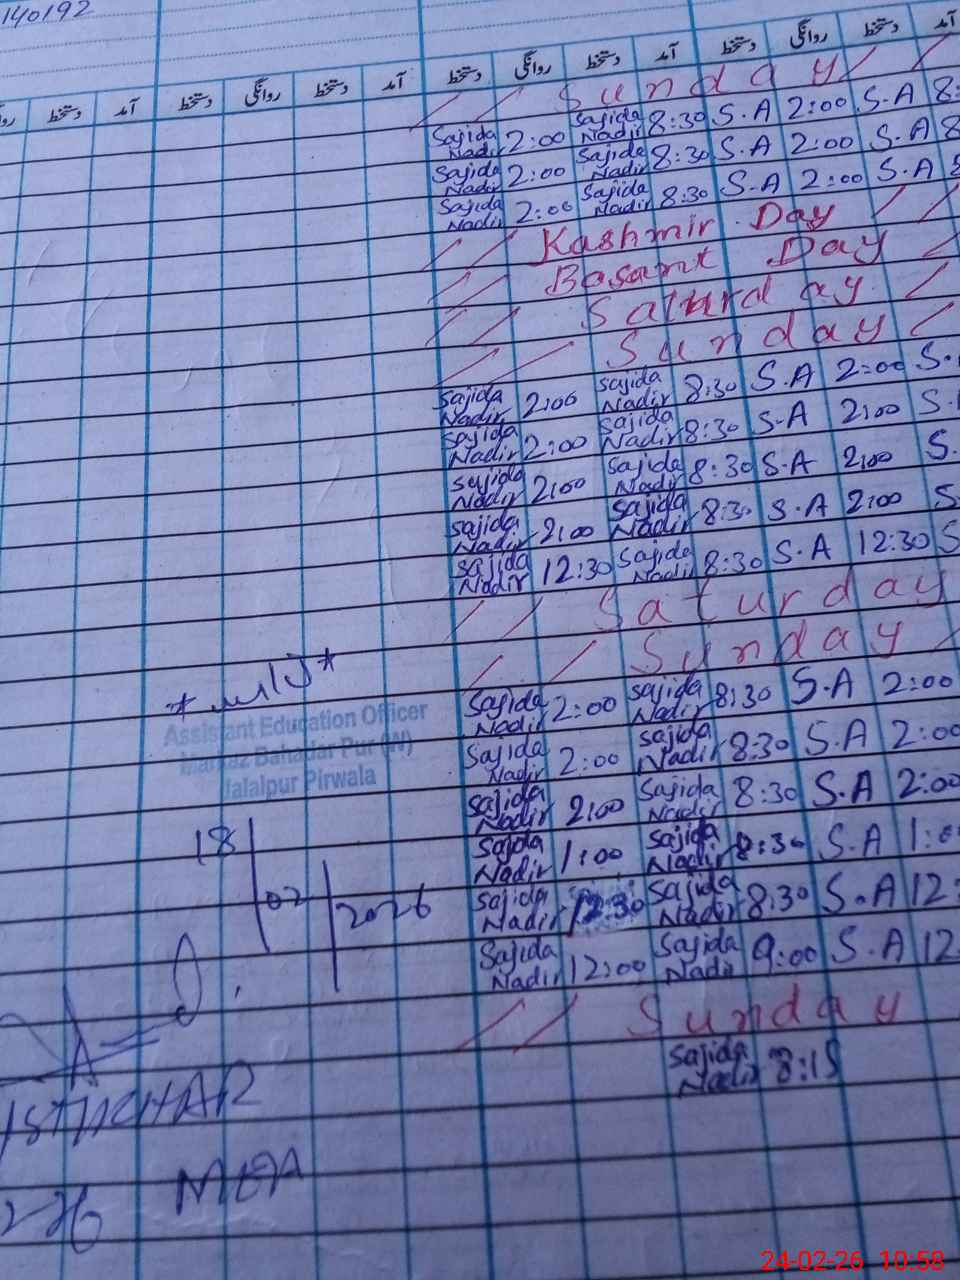 140192
دستخط آمد دستخط روانگی دستخط آمد دستخط روانگی دستخط آمد دستخط روانگی دستخط آمد
Sunday
Sajida Nadir 2:00 Sajida Nadir 8:30 S.A 2:00 S.A 8:
Sajida Nadir 2:00 Sajida Nadir 8:30 S.A 2:00 S.A 8
Sajida Nadir 2:00 Sajida Nadir 8:30 S.A 2:00 S.A 8
Kashmir Day
Basant Day
Saturday
Sunday
Sajida Nadir 2:00 Sajida Nadir 8:30 S.A 2:00 S.
Sajida Nadir 2:00 Sajida Nadir 8:30 S.A 2:00 S.
Sajida Nadir 2:00 Sajida Nadir 8:30 S.A 2:00 S.
Sajida Nadir 2:00 Sajida Nadir 8:30 S.A 2:00 S
Sajida Nadir 12:30 Sajida Nadir 8:30 S.A 12:30 S
Saturday
Sunday
Sajida Nadir 2:00 Sajida Nadir 8:30 S.A 2:00
Assistant Education Officer
Markaz Bahadar Pur (W)
Jalalpur Pirwala
Sajida Nadir 2:00 Sajida Nadir 8:30 S.A 2:00
Sajida Nadir 2:00 Sajida Nadir 8:30 S.A 2:00
Sajida Nadir 1:00 Sajida Nadir 8:30 S.A 1:0
18/02/2026
Sajida Nadir 12:30 Sajida Nadir 8:30 S.A 12:
Sajida Nadir 12:00 Sajida Nadir 9:00 S.A 12
Sunday
Sajida Nadir 8:15
MEA
24-02-26 10:58